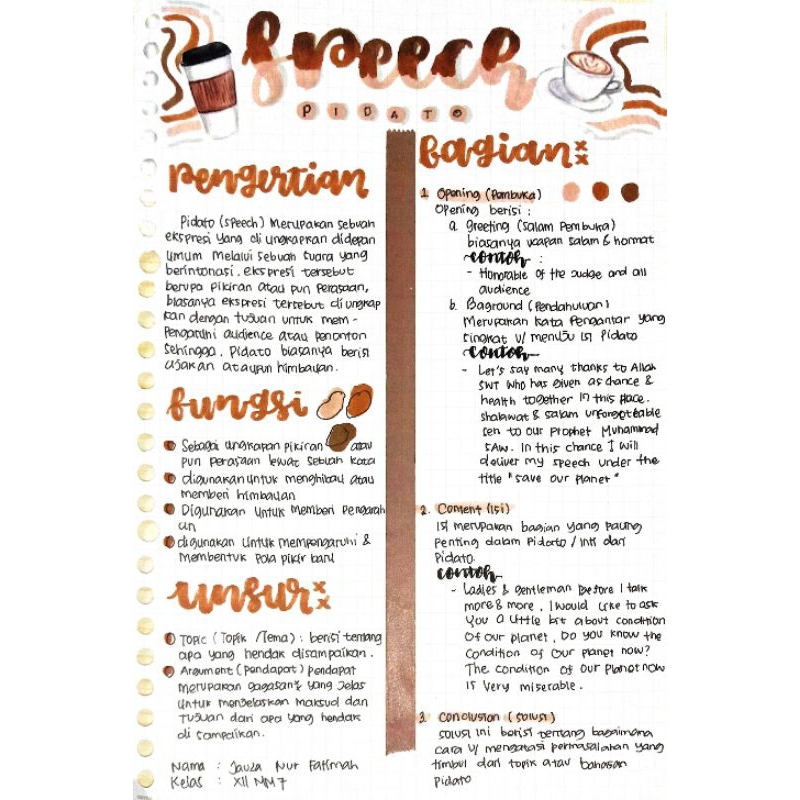 Speech
PIDATO
Pengertian
Pidato (Speech) Merupakan sebuah
ekspresi yang di ungkapkan didepan
umum Melalui sebuah suara yang
berintonasi. ekspresi tersebut
berupa pikiran atau pun Perasaan,
biasanya ekspresi tersebut diungkap
kan dengan tujuan untuk mem-
Pengaruhi audience atau Penonton
Sehingga. Pidato biasanya berisi
ajakan ataupun himbauan.
fungsi
Sebagai ungkapan pikiran atau
pun perasaan lewat sebuah kata
digunakan untuk menghibau atau
memberi himbauan
Digunakan untuk memberi Pengarah
an
digunakan untuk mempengaruhi &
membentuk Pola pikir baru
unsur
Topic (Topik /Tema) : berisi tentang
apa yang hendak disampaikan.
Argument (Pendapat) pendapat
merupakan gagasan² yang jelas
untuk menjelaskan maksud dan
tujuan dari apa yang hendak
di sampaikan.
Nama : Jauza Nur Fatimah
Kelas : XII MM 7
Bagian
1. Opening (Pembuka)
Opening berisi :
a. greeting (Salam Pembuka)
biasanya ucapan salam & hormat
contoh :
- Honorable of the judge and all
audience
b. Baground (Pendahuluan)
Merupakan kata Pengantar yang
singkat u/ menuju isi Pidato
contoh
- Let's say many thanks to Allah
SWT who has given as chance &
health together in this place.
shalawat & salam unforgetable
sen to our Prophet Muhammad
SAW. In this chance I will
deliver my speech under the
title "save our planet"
2. Content (Isi)
Isi merupakan bagian yang paling
Penting dalam Pidato / inti dari
Pidato.
contoh
- Ladies & gentleman before I talk
more & more, I would like to ask
you a little bit about condition
of our planet, Do you know the
condition of our planet now?
The condition of our planet now
is very miserable.
3. Conclusion (solusi)
solusi ini berisi tentang bagaimana
cara u/ mengatasi permasalahan yang
timbul dari topik atau bahasan
Pidato